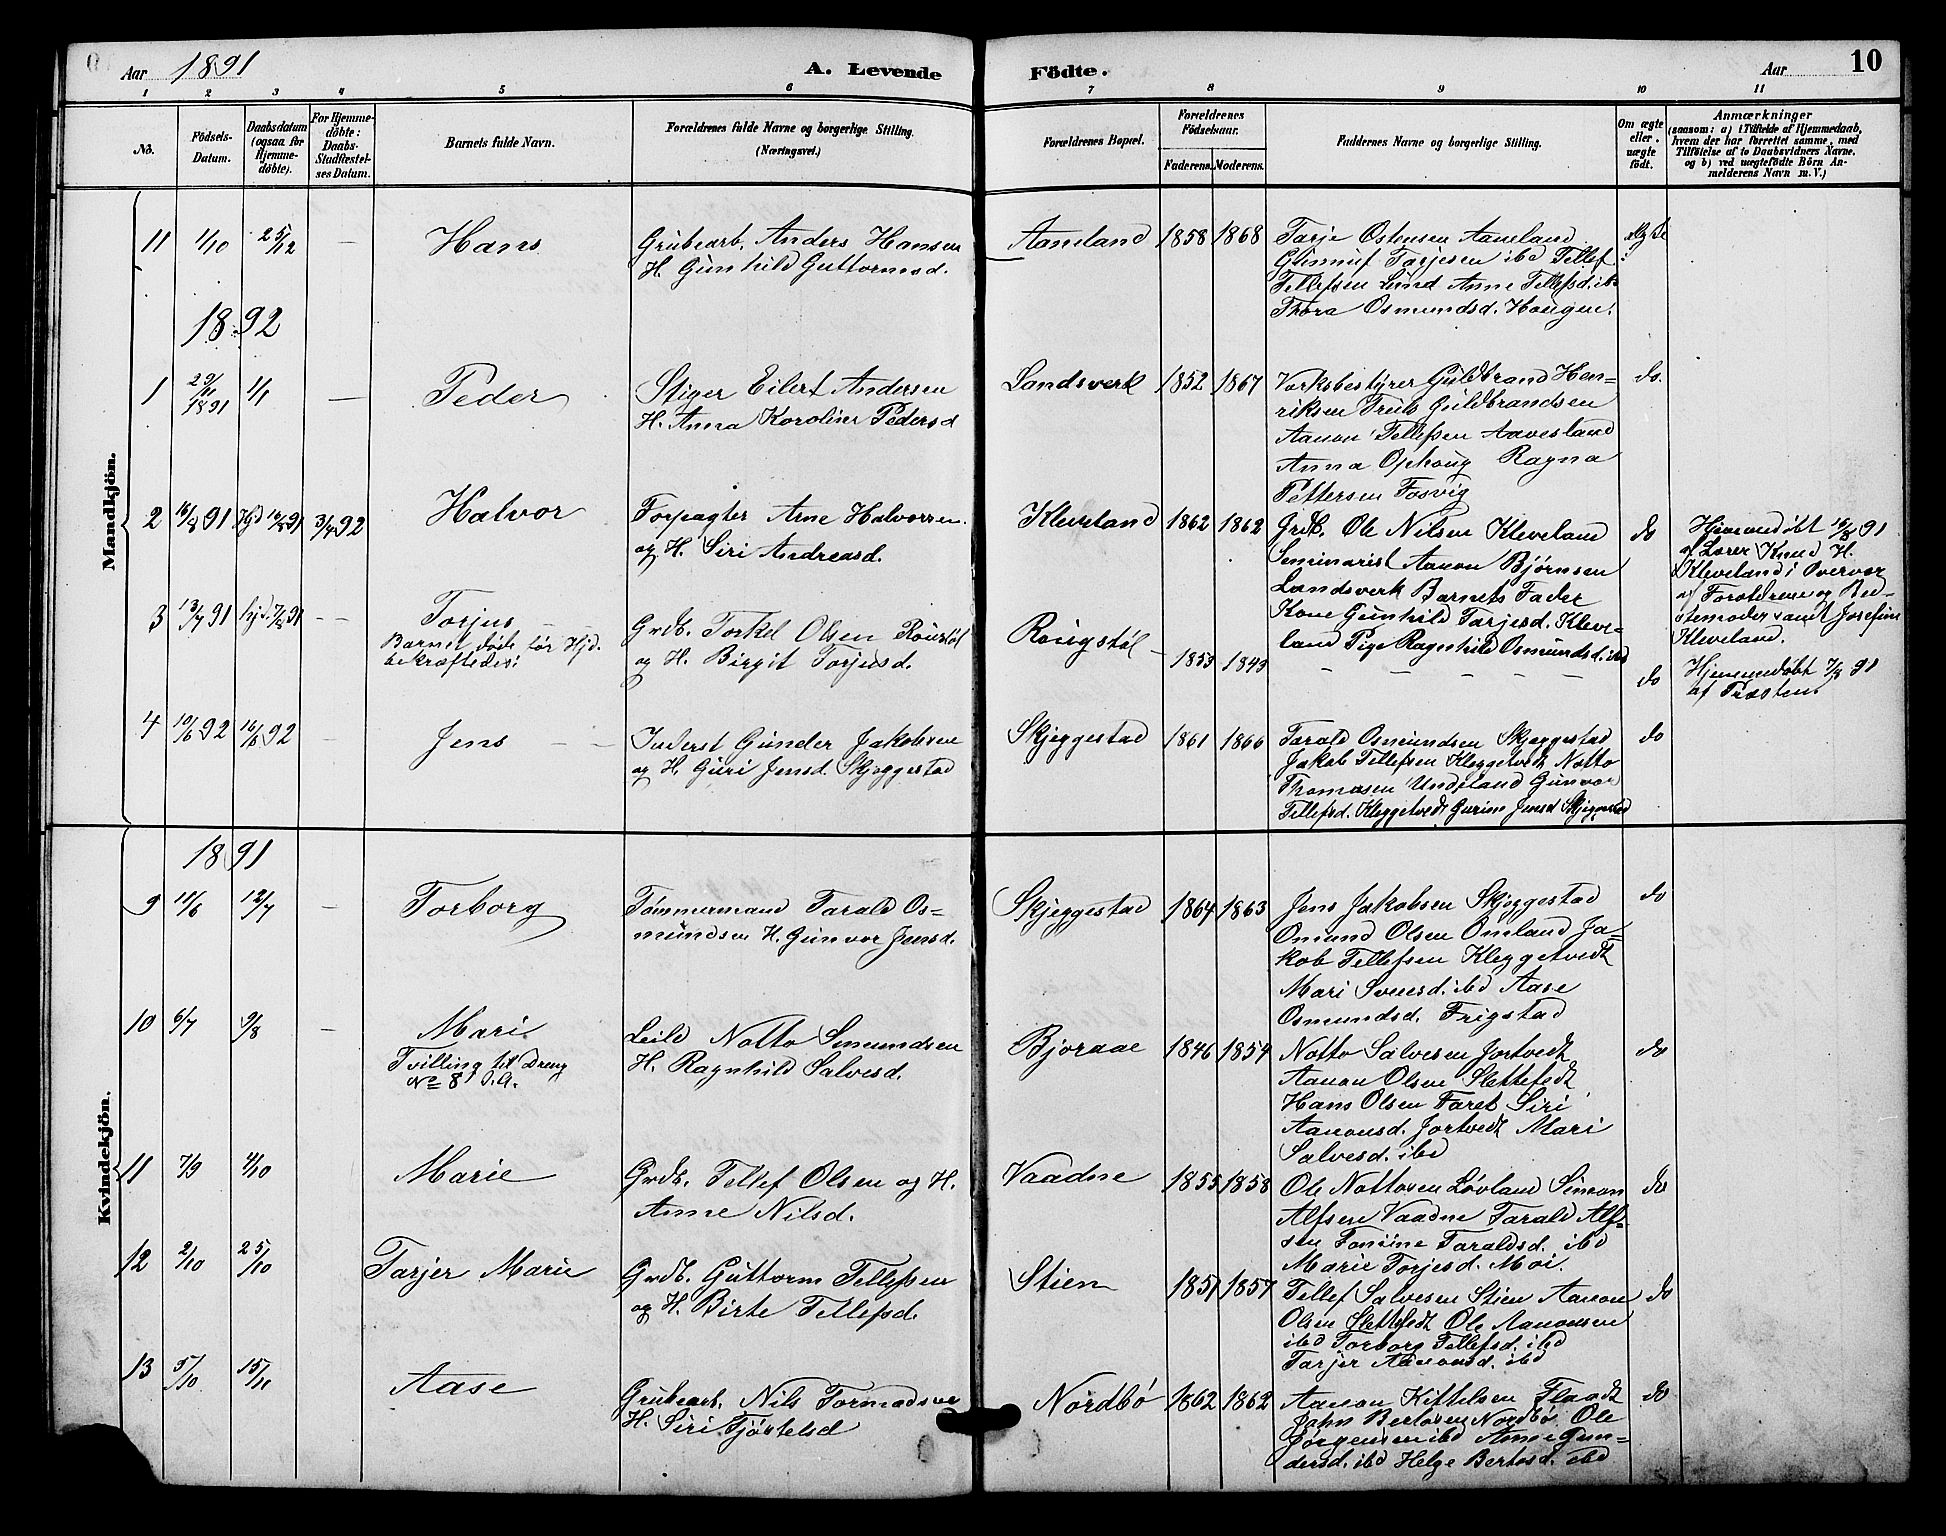 Aar 1891 A. Levende Födte. Aar 10
1 2 3 4 5 6 7 8 9 10 11
No.
Födsels-Datum.
Daabsdatum (ogsaa for Hjemme-döbte).
For Hjemme-döbte: Daabs-Stadfæstel-ses Datum.
Barnets fulde Navn.
Forældrenes fulde Navne og borgerlige Stilling.
(Næringsvei.)
Forældrenes Bopæl.
Forældrenes Födselsaar.
Faderens. Moderens.
Faddernes Navne og borgerlige Stilling.
Om ægte eller uægte födt.
Anmærkninger
(saasom: a) i Tilfælde af Hjemmedaab,
hvem der har forrettet samme, med
Tilföielse af to Daabsvidners Navne,
og b) ved uægtefödte Börn An-
melderens Navn m. V.)
Mandkjön.
11 1/10 25/12 — Hans
Grubearb. Anders Hansen
H. Gunhild Guttormsd.
Aamland 1858 1868
Tarje Ostensen Aamland
Gunnuf Tarjesen ibd Tellef
Tellefsen Lund Anne Tellefsd. ib
Thora Osmundsd. Haugen.
ægte
1892
1 29/11 1891 1/1 — Peder
Stiger Eilert Andersen
H. Anna Karoline Pedersd
Landsverk 1852 1867
Værksbestyrer Guldbrand Hen=
riksen Truls Guldbrandsen
Aanon Tellefsen Aavesland
Anna Ophoug Ragna
Pettersen Fosvig
do.
2 16/8 91 Hjd 16/8 91 3/4 92 Halvor
Forpagter Arne Halvorsen
og H. Siri Andreasd.
Kleveland 1862 1862
Grdb. Ole Nilsen Kleveland
Seminarist Aanon Bjørnsen
Landsverk Barnets Fader
Kone Gunhild Tarjesd. Kleve-
land Pige Ragnhild Osmundsd. ibd
do
Hjemmedøbt 16/8 91
af Lærer Knud H.
Kleveland i Overvær
af Forældrene og Bed-
stemoder samt Josefine
Kleveland.
3 13/7 91 hjd. 7/8 91 — — Torjus —
Barnet døde før Hjd.
bekræftedes:
Grdb. Torkel Olsen Rougstøl
og H. Birgit Torjusd.
Rougstøl — 1853 1843
— — — — —
do
Hjemmedøbt 7/8 91
af Præsten
4 10/6 92 16/6 92 — Jens — —
Inderst Gunder Jakobsen
og H. Guri Jensd. Skjeggestad
Skjeggestad 1861 1866
Tarald Osmundsen Skjeggestad
Jakob Tellefsen Kleggetvedt Notto
Thomasen Undeland Gunvor
Tellefsd. Kleggetvedt Gurine Jensd Skjeggestad
do
Kvindekjön.
1891
9 10/6 12/7 — Torborg
Tømmermand Tarald Os=
mundsen H. Gunvor Jensd.
Skjeggestad 1864 1863
Jens Jakobsen Skjeggestad
Omund Olsen Omland Ja=
kob Tellefsen Kleggetvedt
Mari Svensd. ibd Aase
Osmundsd. Frigstad
do
10 6/7 9/8 — Mari
Tvilling til Dreng
No 8 S. A.
Leild Notto Simundsen
H. Ragnhild Salvesd.
Bjoraae 1846 1854
Notto Salvesen Jortvedt
Aanon Olsen Slettefedt
Hans Olsen Faret Siri
Aanonsd. Jortvedt Mari
Salvesd. ibd
do
11 7/9 4/10 Marie
Grdb. Tellef Olsen og H.
Anne Nilsd.
Vaadne 1855 1858
Ole Nottosen Løvland Simon
Alfsen Vaadne Tarald Alf-
sen Tomine Taraldsd. ibd
Marie Torjesd. Moi.
do
12 2/10 25/10 Tarjer Marie
Grdb. Guttorm Tellefsen
og H. Birte Tellefsd.
Stien 1851 1857
Tellef Salvesen Stien Aanon
Olsen Slettefedt Ole Aanonsen
ibd Torborg Tellefsd. ibd
Tarjer Aanonsd. ibd
do
13 5/10 15/11 Aase
Grubearb. Nils Tormodsen
H. Siri Kjøstelsd
Nordbø 1862 1862
Aanon Kittelsen Flaadt
John Bertosen Nordbø Ole
Jørgensen ibd Anne Gun=
dersd. ibd Helge Bertosd. ibd
do